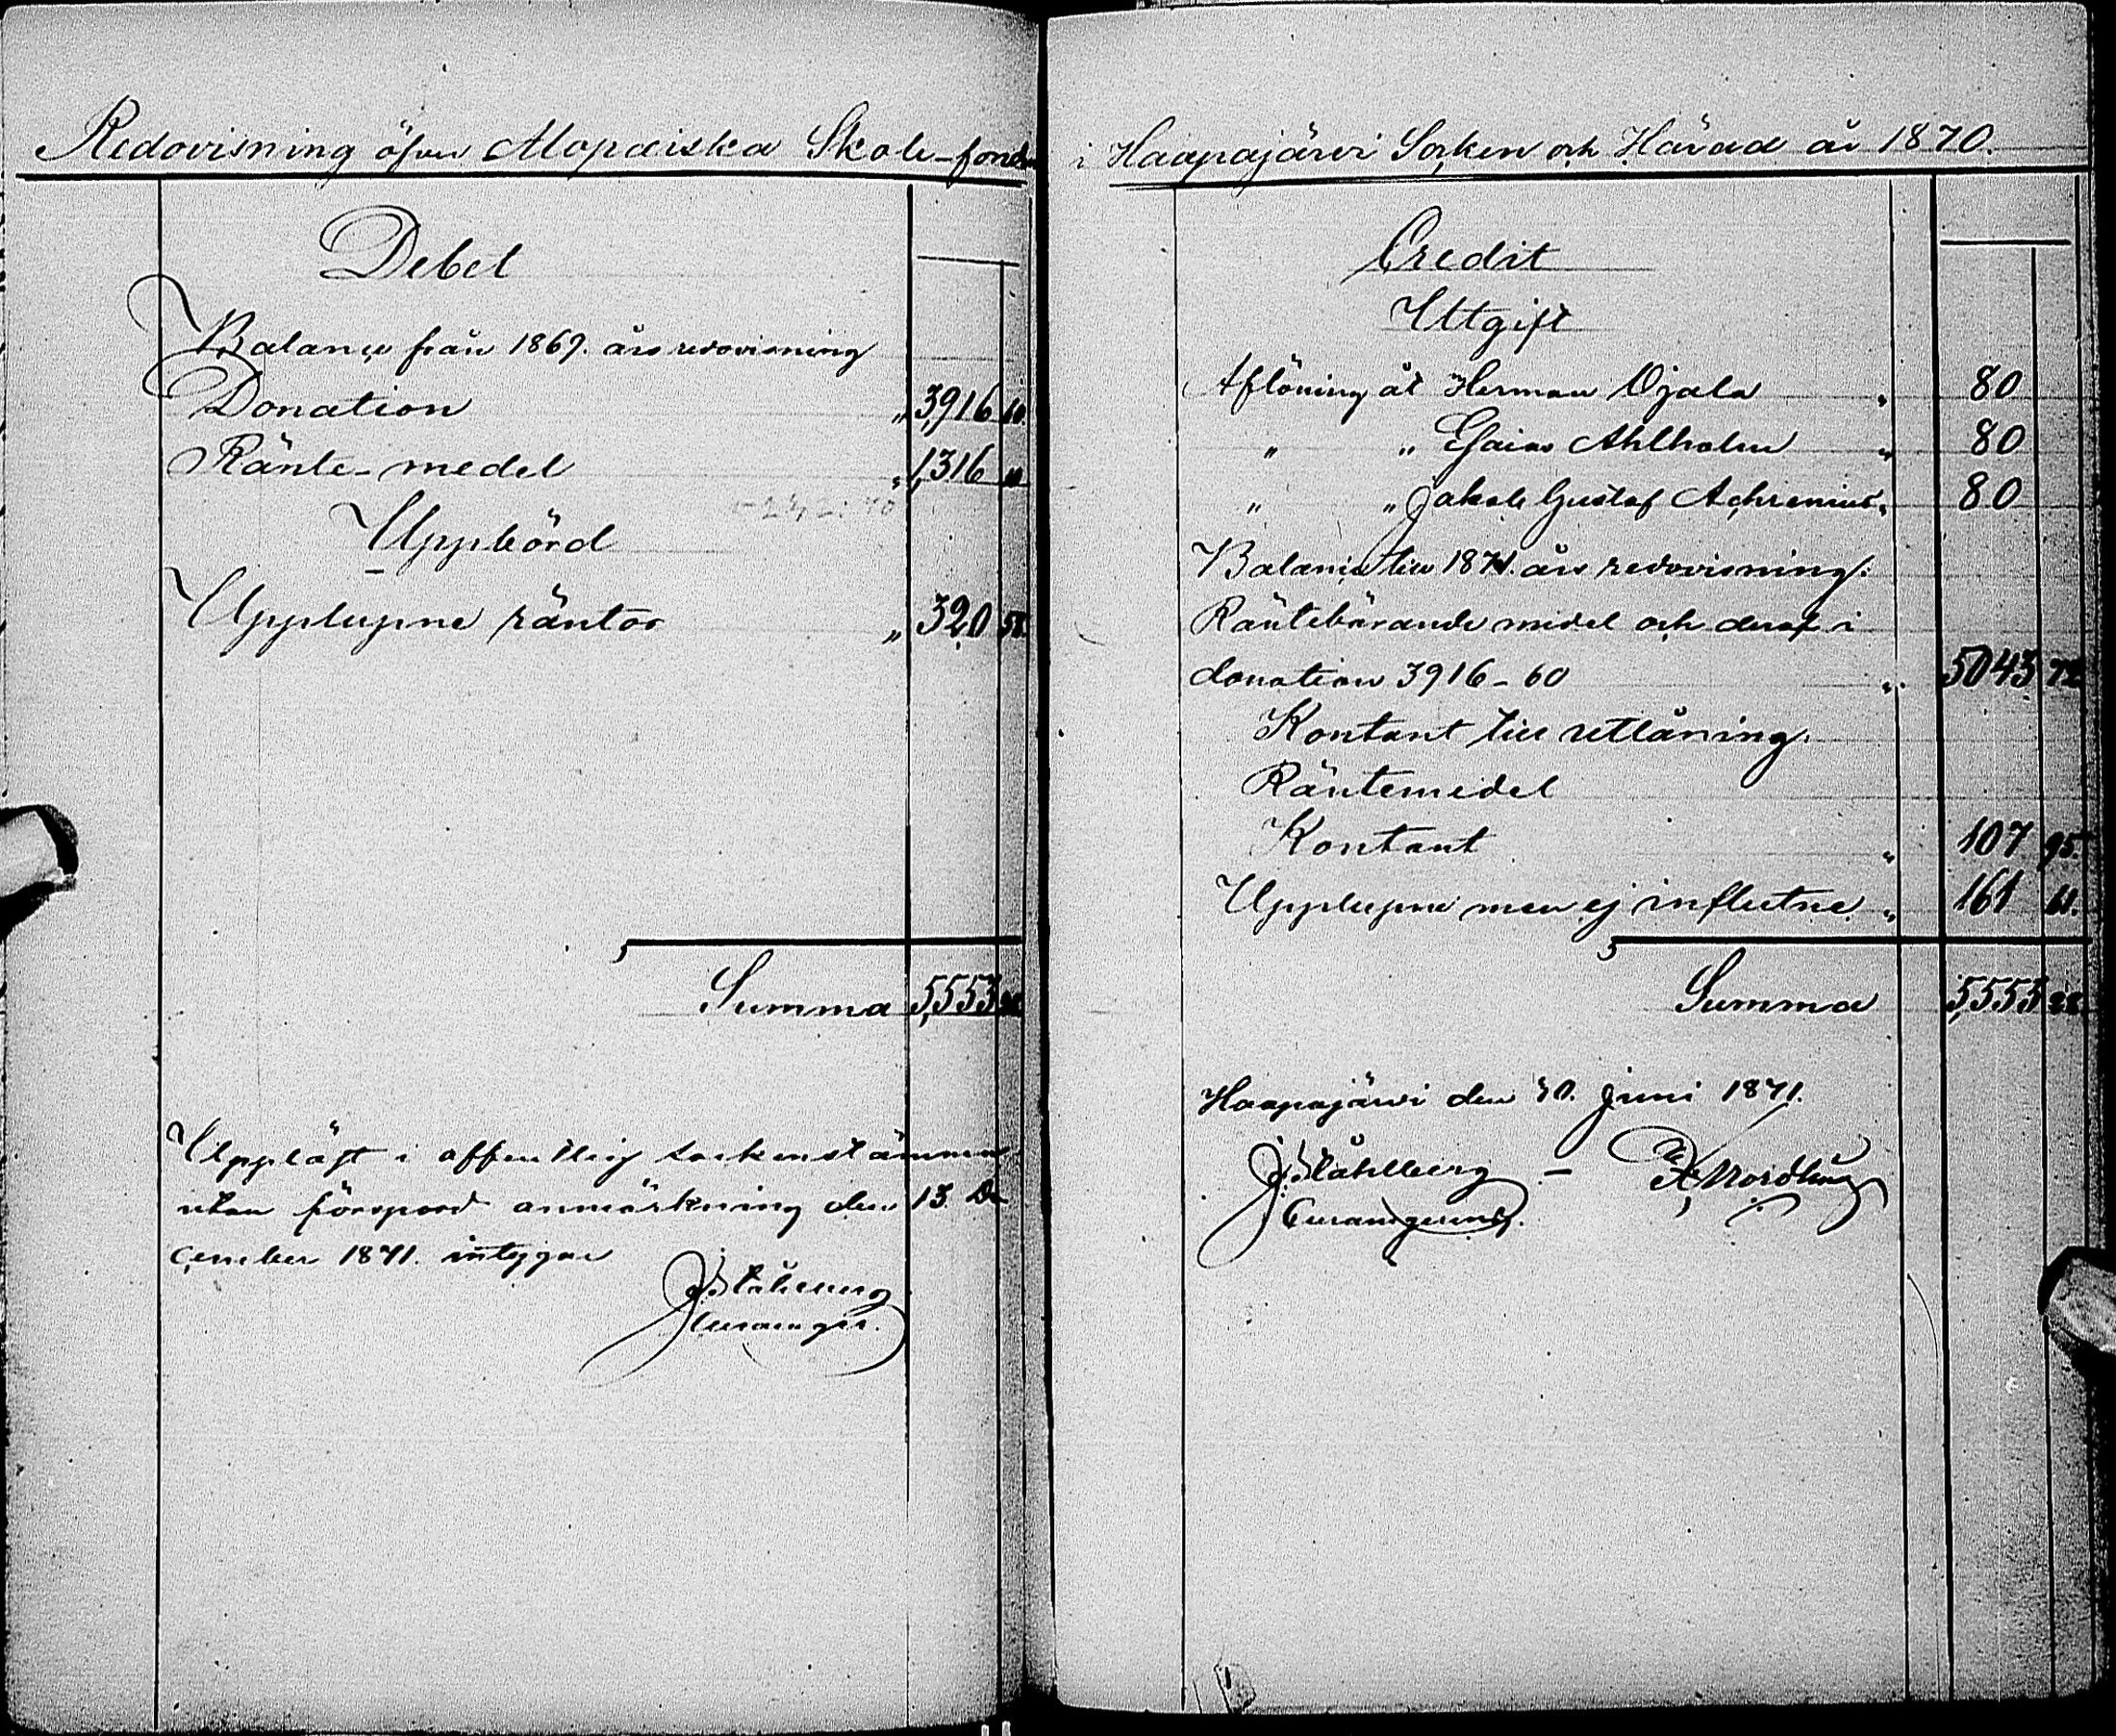 Redovisning öfver Alopæiska Skole-fonden
Debet
Balance från 1869. års redovisning
Donation „ 3,916 60.
Ränte-medel „ 1,316 10
Uppbörd
Upplupne räntor „ 320 58.
Summa 5,553 28
Uppläst i offentlig sockenstämma
utan förspord anmärkning den 13 De-
cember 1871. intygar
J. Ståhlberg
i Haapajärvi Socken och Härad år 1870.
Credit
Utgift
Aflöning åt Herman Ojala „ 80
„ „ Esaias Ahlholm „ 80
„ „ Jakob Gustaf Achrenius „ 80
Balance till 1871. års redovisning:
Räntebärande medel och deraf i
donation 3916-60 „ 5043 72
Kontant till utlåning.
Räntemedel
Kontant „ 107 95.
Upplupne men ej influtne „ 161 61.
Summa 5,553 28
Haapajärvi den 30. Juni 1871.
J. Ståhlberg —